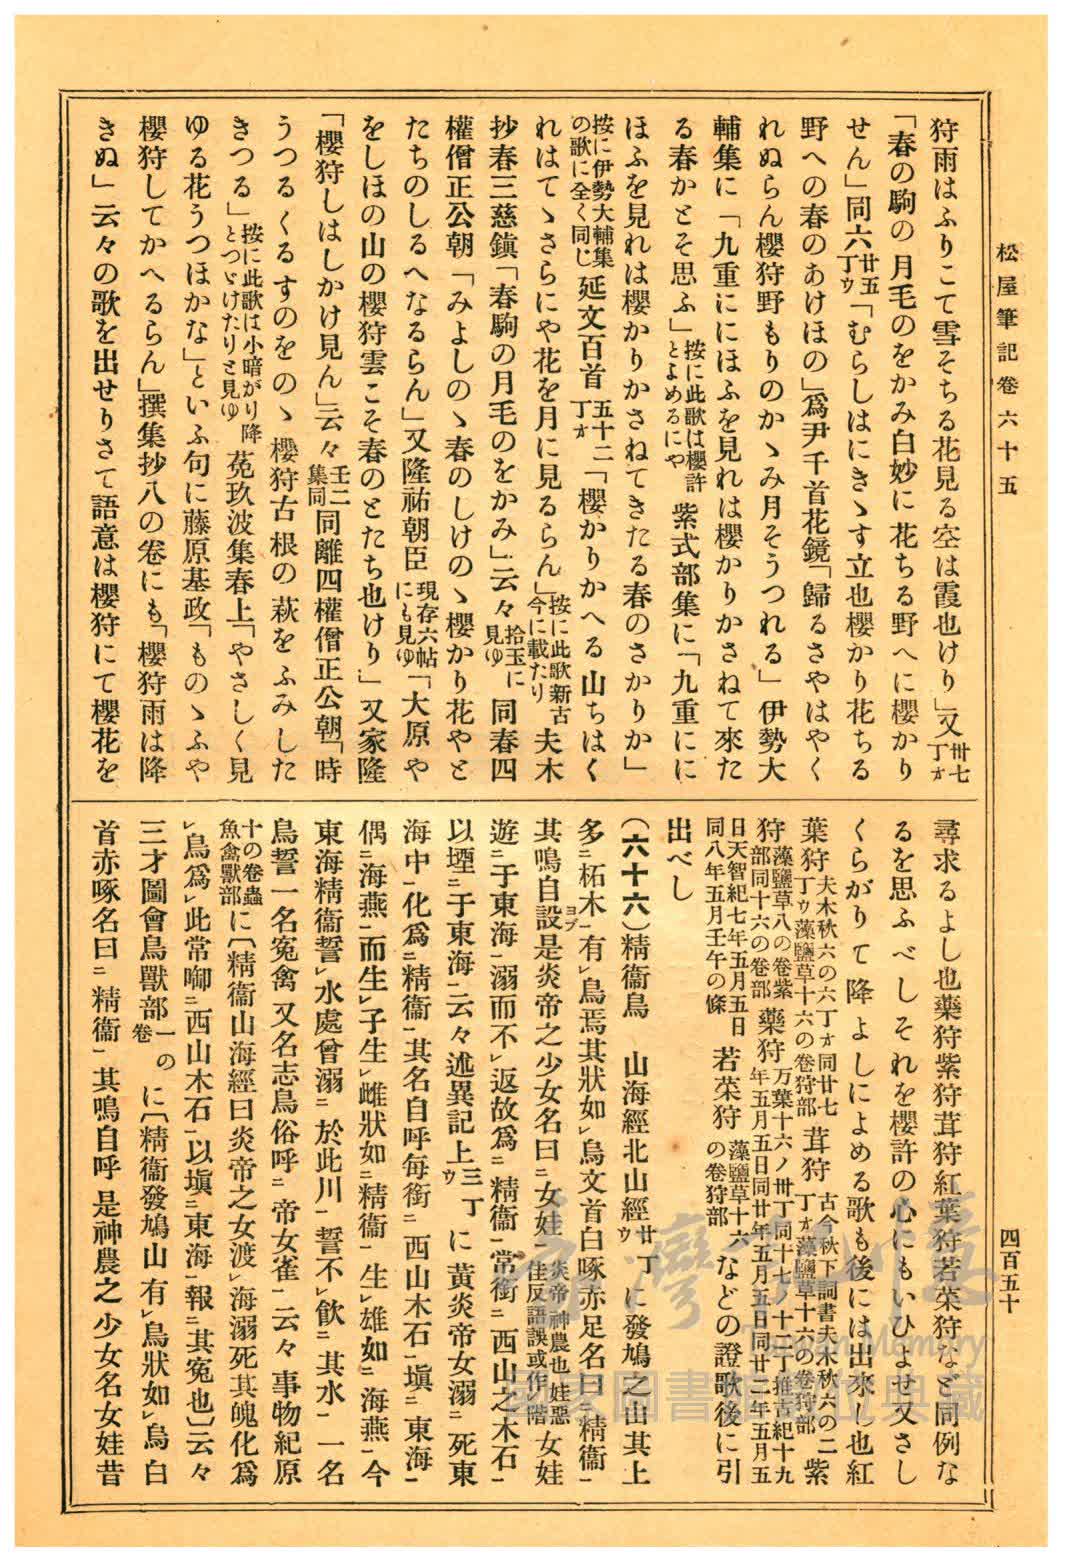 松屋筆記卷六十五
四百五十
狩雨はふりこて雪そちる花見る空は霞也けり」又丗七丁ォ
「春の駒の月毛のをかみ白妙に花ちる野へに櫻かり
せん」同六廿五丁ゥ「むらしはにきゝす立也櫻かり花ちる
野への春のあけほの」爲尹千首花鏡「歸るさやはやく
れぬらん櫻狩野もりのかゝみ月そうつれる」伊勢大
輔集に「九重ににほふを見れは櫻かりかさねて來た
る春かとそ思ふ」按に此歌は櫻許とよめるにや紫式部集に「九重にに
ほふを見れは櫻かりかさねてきたる春のさかりか」
按に伊勢大輔集の歌に全く同じ延文百首五十二丁ォ「櫻かりかへる山ちはく
れはてゝさらにや花を月に見るらん」按に此歌新古今に載たり夫木
抄春三慈鎭「春駒の月毛のをかみ」云々拾玉に見ゆ同春四
權僧正公朝「みよしのゝ春のしけのゝ櫻かり花やと
たちのしるへなるらん」又隆祐朝臣現存六帖にも見ゆ「大原や
をしほの山の櫻狩雲こそ春のとたち也けり」又家隆
「櫻狩しはしかけ見ん」云々壬二集同同離四權僧正公朝「時
うつるくるすのをのゝ櫻狩古根の萩をふみした
きつる」按に此歌は小暗がり降とつゞけたりと見ゆ菟玖波集春上「やさしく見
ゆる花うつほかな」といふ句に藤原基政「ものゝふや
櫻狩してかへるらん」撰集抄八の卷にも「櫻狩雨は降
きぬ」云々の歌を出せりさて語意は櫻狩にて櫻花を
尋求るよし也藥狩紫狩茸狩紅葉狩若菜狩など同例な
るを思ふべしそれを櫻許の心にもいひよせ又さし
くらがりて降よしによめる歌も後には出來し也紅
葉狩夫木秋六の六丁ォ同廿七丁ゥ藻鹽草十六の卷狩部茸狩古今秋下詞書夫木秋六の二丁ォ藻鹽草十六の卷狩部紫
狩藻鹽草八の卷紫部同十六の卷部藥狩万葉十六ノ卅丁同十七ノ十二丁推古紀十九年五月五日同廿年五月五日同廿二年五月五
日天智紀七年五月五日同八年五月壬午の條若菜狩藻鹽草十六の卷狩部などの證歌後に引
出べし
（六十六）精衞鳥　山海經北山經廿丁ゥに發鳩之山其上
多ニ柘木一有レ鳥焉其狀如レ烏文首白啄赤足名曰ニ精衞一
其鳴自設ヨブ是炎帝之少女名曰ニ女娃一炎帝神農也娃惡佳反語誤或作レ階女娃
遊ニ于東海一溺而不レ返故爲ニ精衞一常銜ニ西山之木石一
以堙ニ于東海一云々述異記上三丁ゥに黄炎帝女溺ニ死東
海中一化爲ニ精衞一其名自呼每銜ニ西山木石一塡ニ東海一
偶ニ海燕一而生レ子生レ雌狀如ニ精衞一生レ雄如ニ海燕一今
東海精衞誓レ水處曾溺ニ於此川一誓不レ飮ニ其水一一名
鳥誓一名寃禽又名志鳥俗呼ニ帝女雀一云々事物紀原
十の卷蟲魚禽獸部に〔精衞山海經曰炎帝之女渡レ海溺死其魄化爲
レ鳥爲レ此常啣ニ西山木石一以塡ニ東海一報ニ其寃也〕云々
三才圖會鳥獸部一の卷に〔精衞發鳩山有レ鳥狀如レ烏白
首赤啄名曰ニ精衞一其鳴自呼是神農之少女名女娃昔